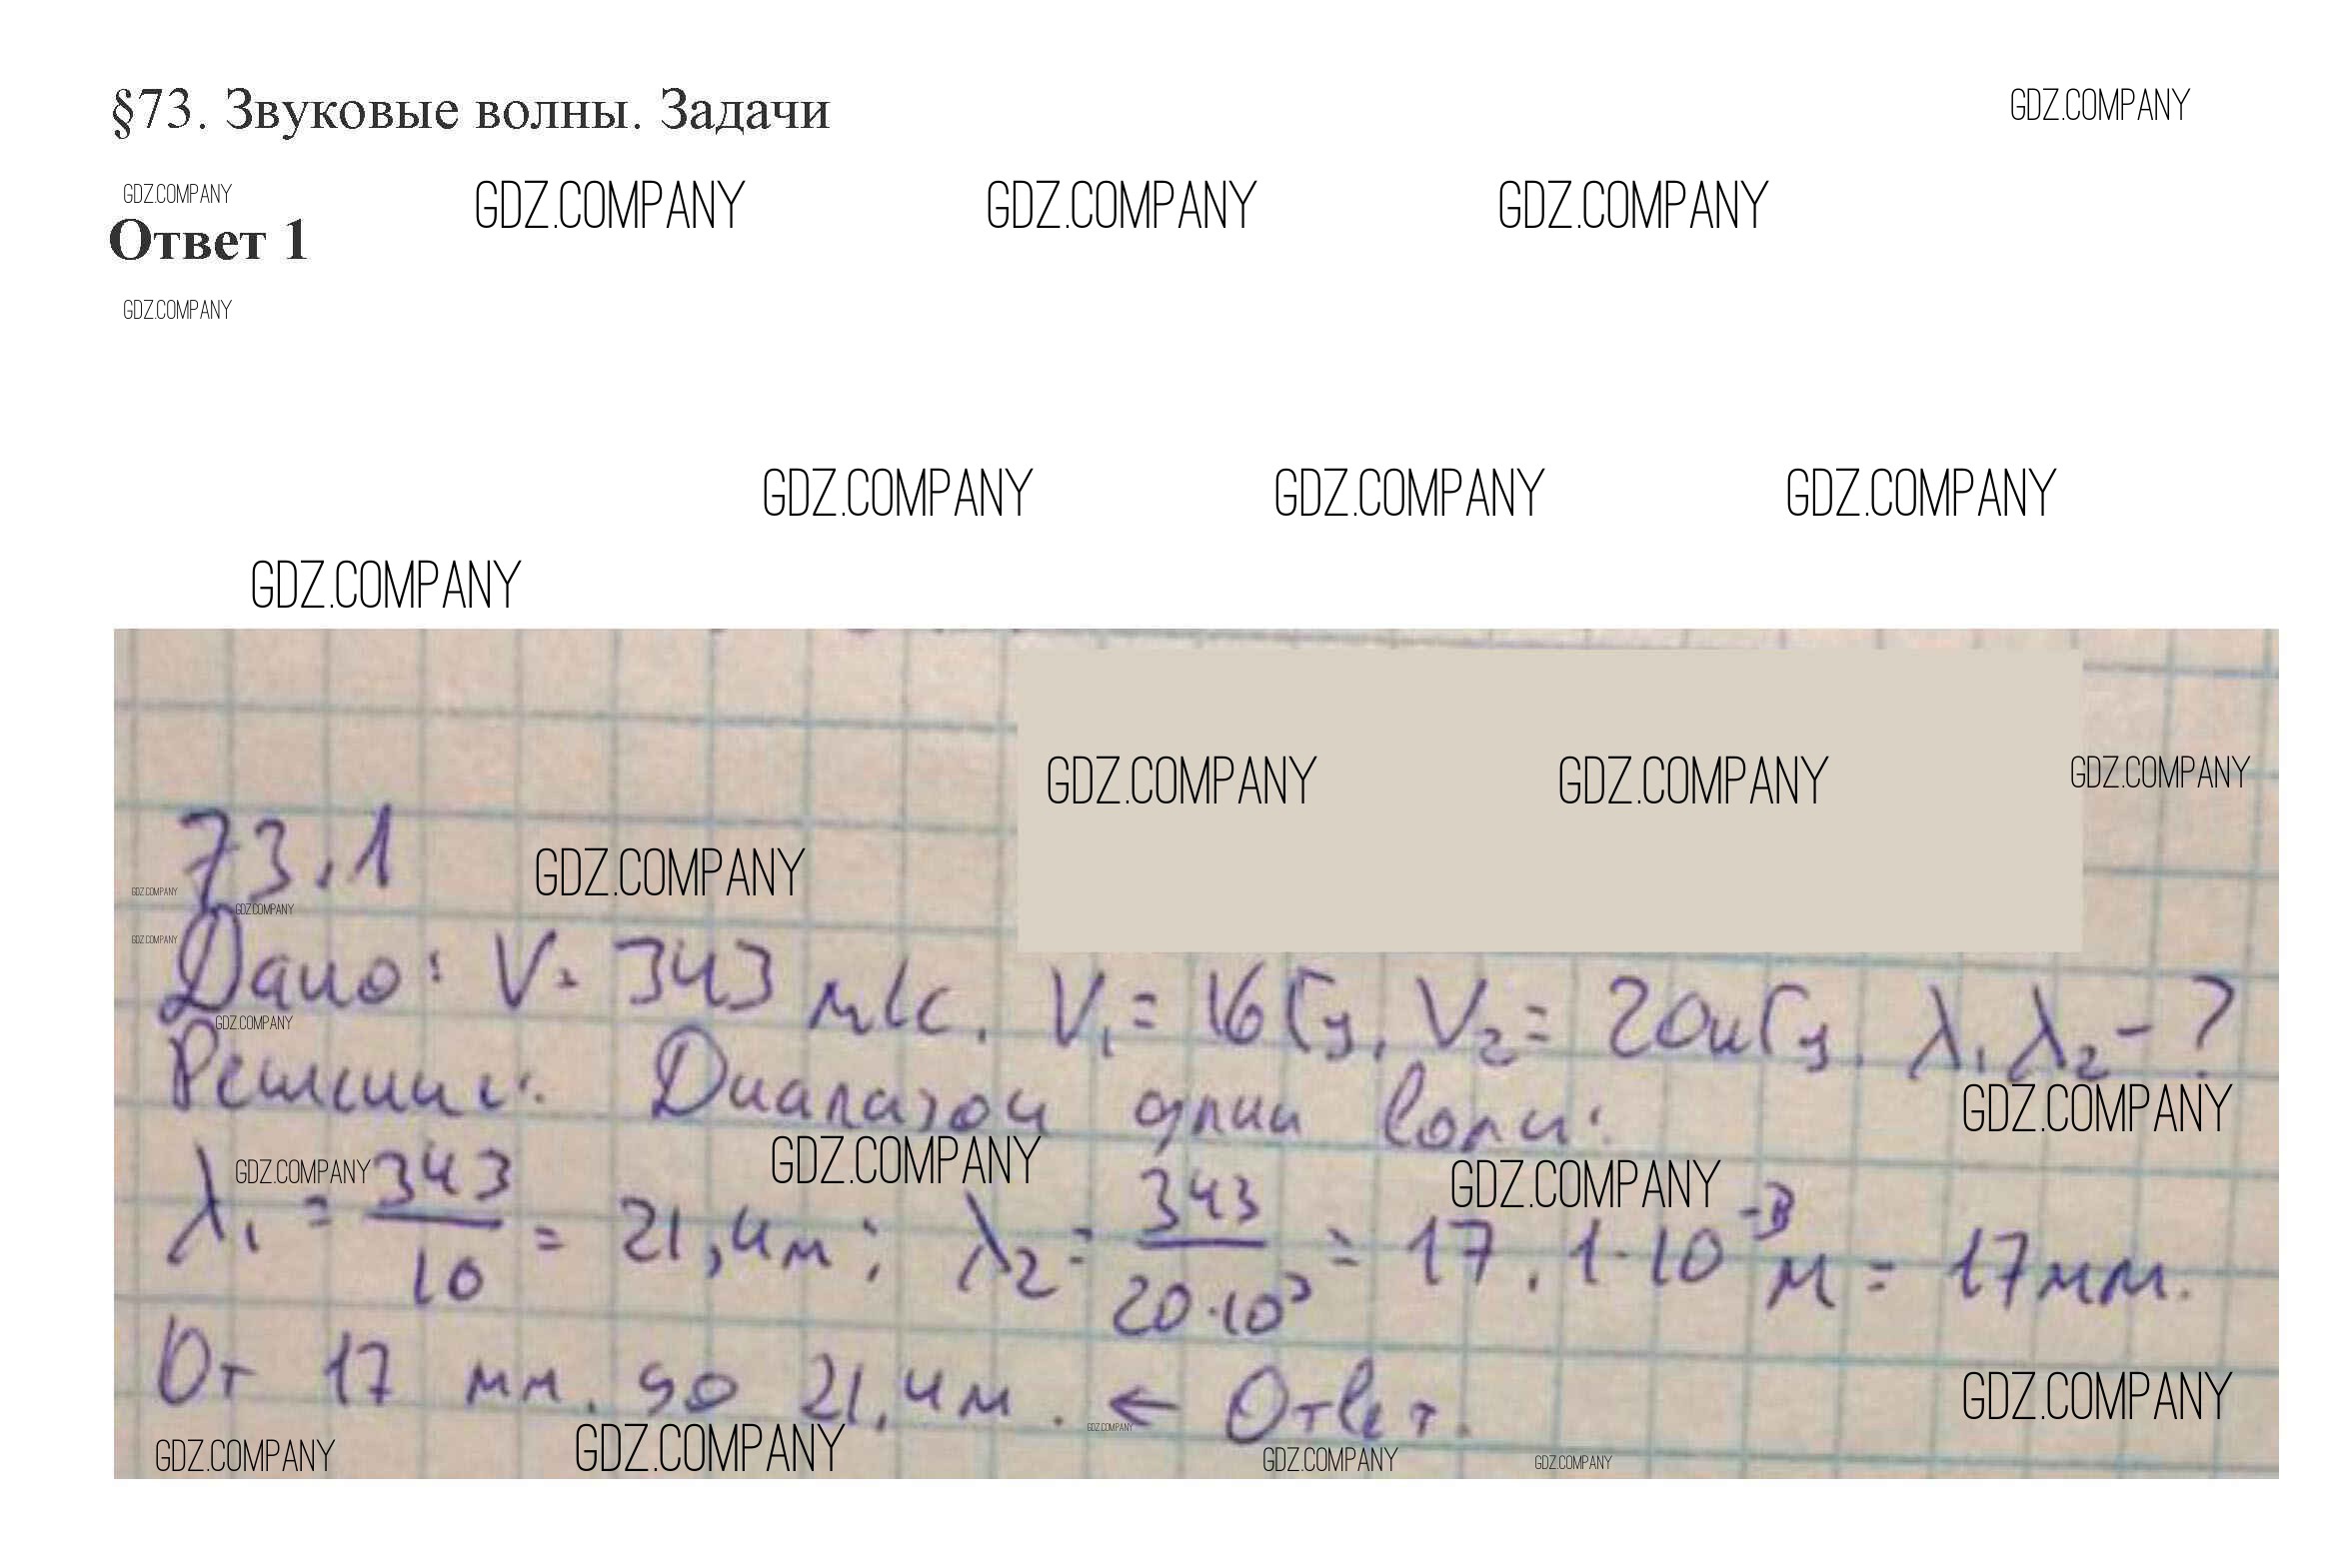 §73. Звуковые волны. Задачи
GDZ.COMPANY
GDZ.COMPANY
GDZ.COMPANY GDZ.COMPANY GDZ.COMPANY
Ответ 1
GDZ.COMPANY
GDZ.COMPANY GDZ.COMPANY GDZ.COMPANY
GDZ.COMPANY
GDZ.COMPANY GDZ.COMPANY GDZ.COMPANY
73.1
GDZ.COMPANY
GDZ.COMPANY
GDZ.COMPANY
GDZ.COMPANY
Дано: V = 343 м/с. V₁ = 16 Гц, V₂ = 20кГц. λ₁ λ₂ - ?
GDZ.COMPANY
Решение: Диапазон длин волн:
GDZ.COMPANY
GDZ.COMPANY GDZ.COMPANY GDZ.COMPANY
λ₁ = 343/10 = 21,4м; λ₂ = 343/20·10³ = 17,1·10⁻³ м = 17мм.
От 17 мм. до 21,4м. ← Ответ.
GDZ.COMPANY
GDZ.COMPANY
GDZ.COMPANY GDZ.COMPANY GDZ.COMPANY GDZ.COMPANY